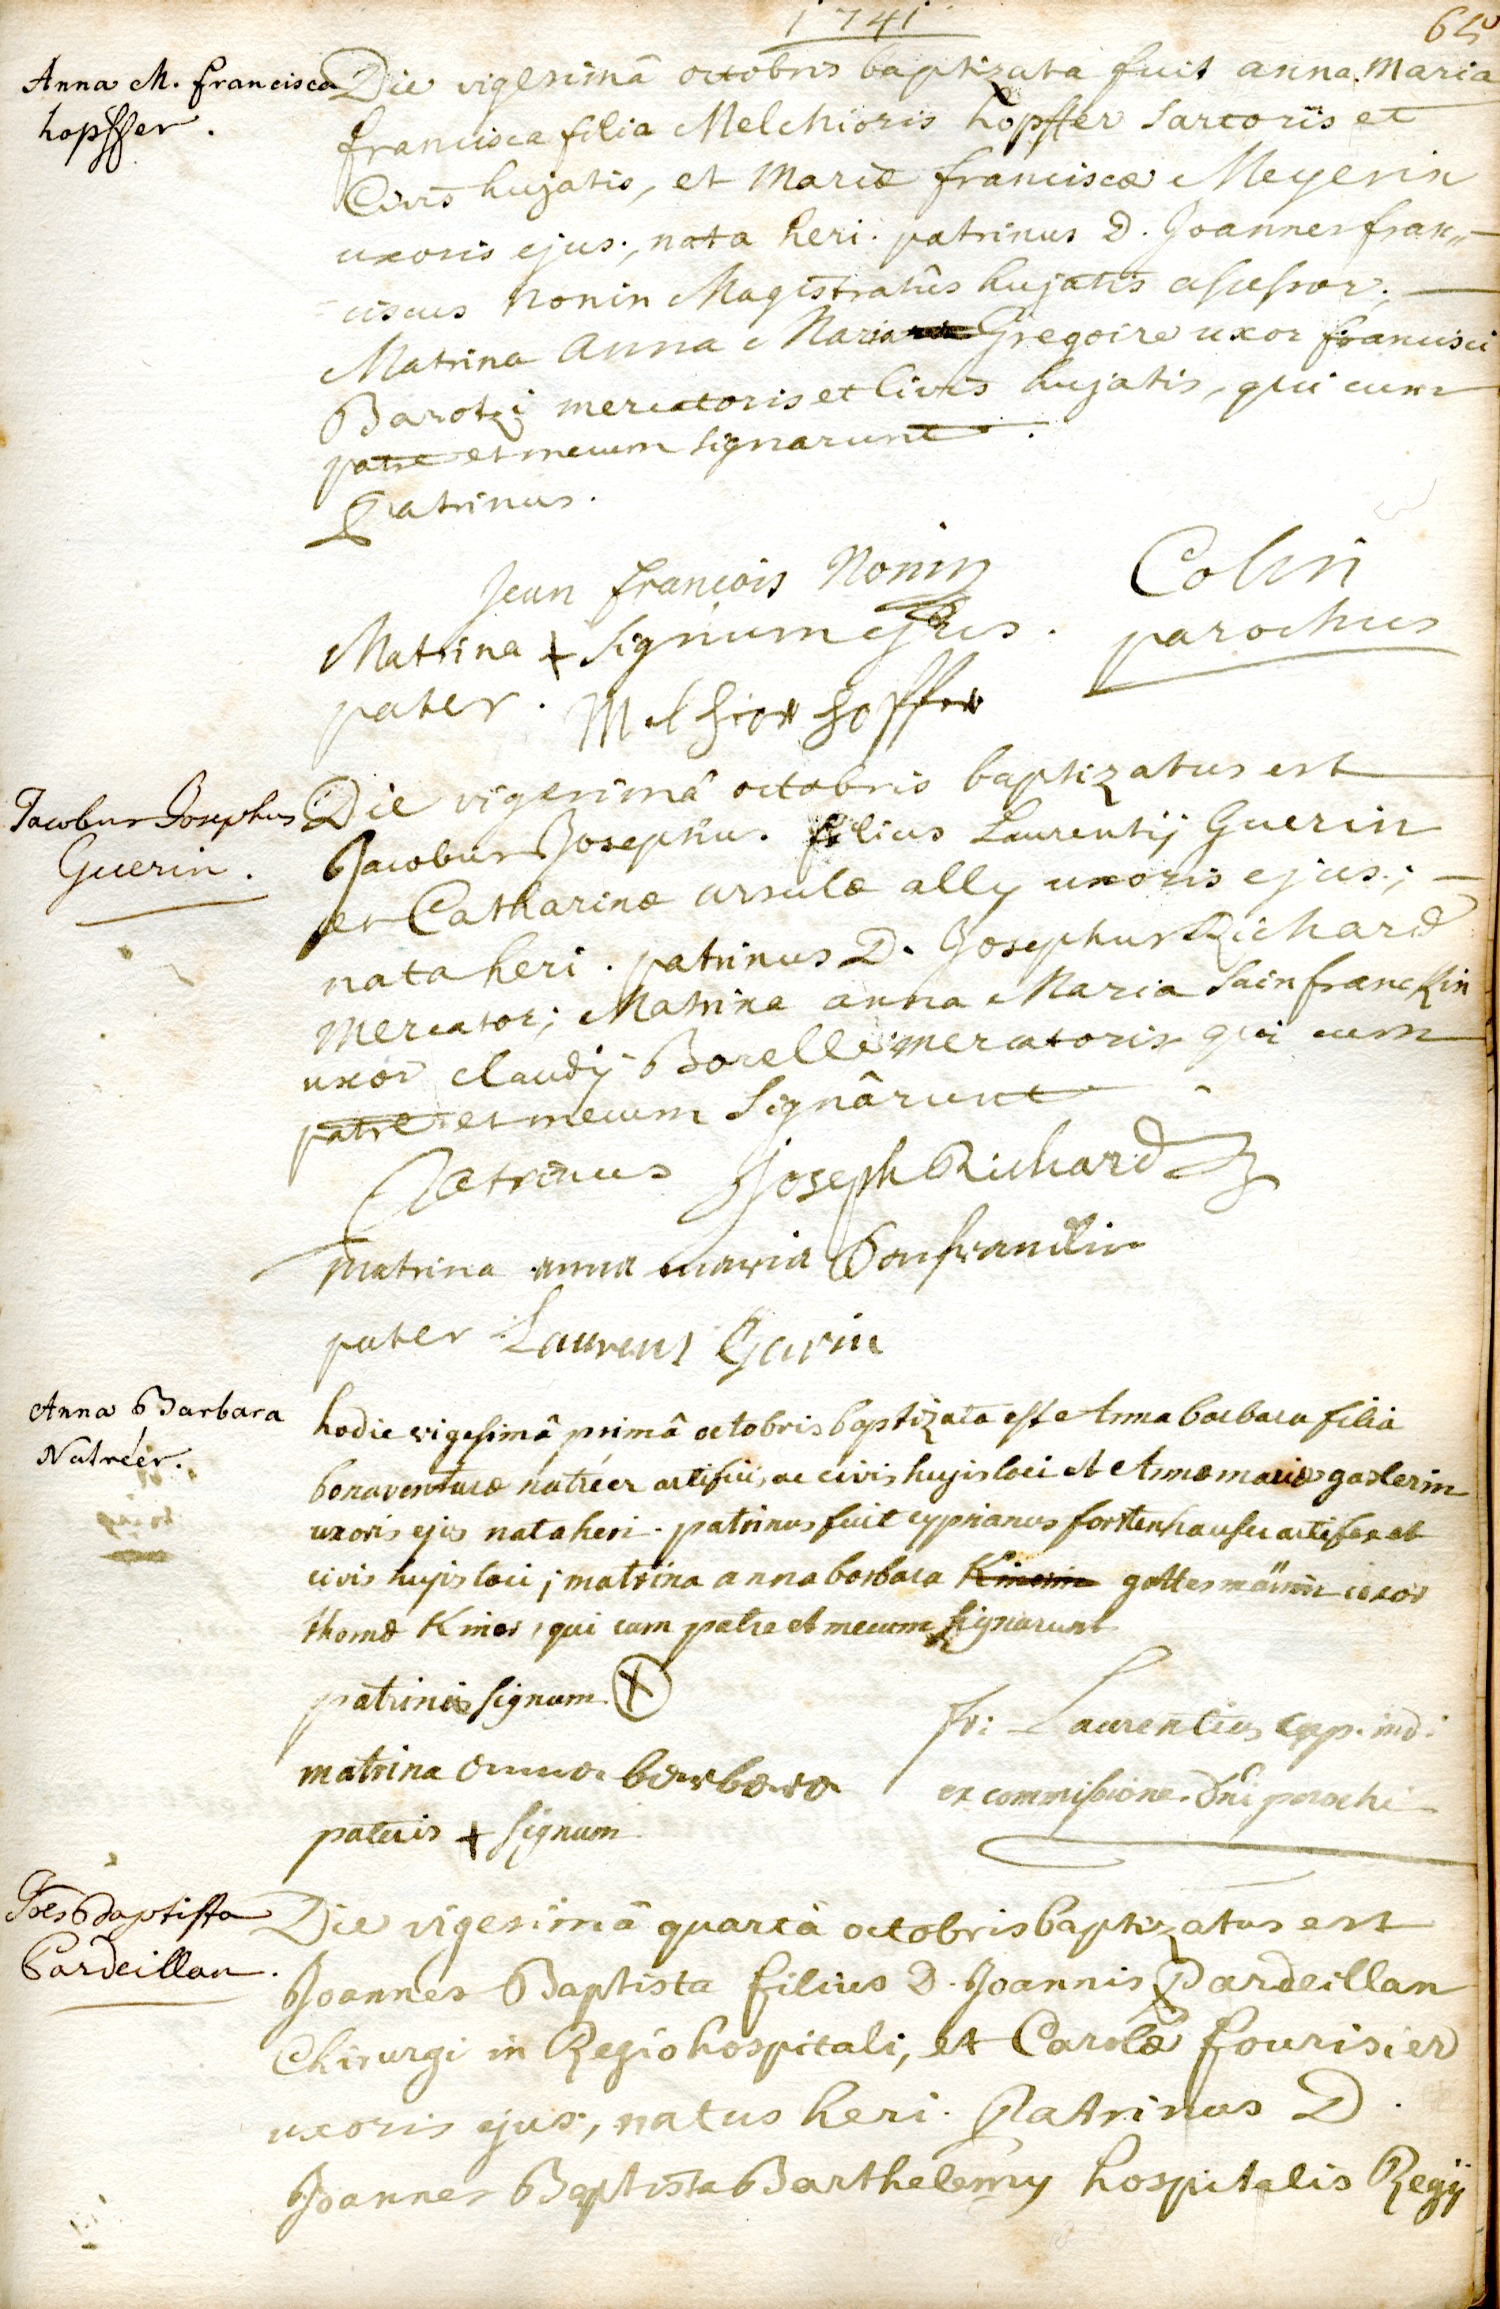 1741
65
Anna M. francisca
hopffer.
Die vigesimâ octobris baptizata fuit anna Maria
francisca filia Melchioris hopffer Sartoris et
Civis hujatis, et Mariæ franciscæ Meyerin
uxoris ejus, nata heri. patrinus D. Joannes fran„
ciscus Nonin Magistratûs hujatis assessor;
Matrina Anna Maria Gregoire uxor francisci
Barotzi mercatoris et Civis hujatis, qui cum
patre et mecum signarunt.
Patrinus.
Jean francois Nonin
Colin
Matrina + signum ejus.
parochus
pater. Melchior hoffer
Jacobus Josephus
Guerin.
Die vigesimâ octobris baptizatus est
Jacobus Josephus. filius Laurentij Guerin
et Catharinæ ursulæ ally uxoris ejus;
nata heri. patrinus D. Josephus Richard
Mercator; Matrina anna Maria Sainfranckin
uxor claudij Borelle mercatoris qui cum
patre et mecum Signârunt
Patrinus Joseph Richard
Matrina anna maria
pater Laurent Garin
Anna Barbara
Natréer.
hodie vigesimâ primâ octobris baptizata est Anna barbara filia
bonaventuræ natréer artificis ac civis hujis loci et Annæ mariæ gaxlerin
uxoris ejis nata heri. patrinus fuit cyprianus fortenhauser artifex et
civis hujis loci; matrina anna barbara Kinerin gottesmännin uxor
thomæ Kiner, qui cum patre et mecum signarunt
patrinis signum +
fr: Laurentius Cap. ind:
matrina anna barbara
ex commissione Dni parochi
patris + signum
Joes Baptista
Pardeillan.
Die vigesimâ quartâ octobris baptizatus est
Joannes Baptista filius D. Joannis Pardeillan
Chirurgi in Regio hospitali, et Carolæ fourisier
uxoris ejus, natus heri. Patrinus D.
Joannes Baptista Barthelemy hospitalis Regij